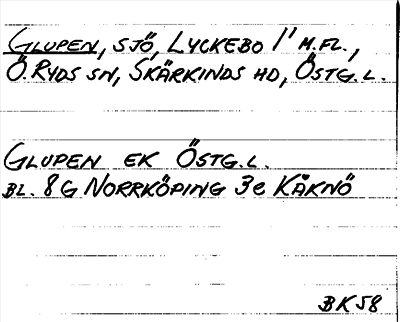 GLUPEN, SJÖ, LYCKEBO 1' M.FL.,
Ö. RYDS SN, SKÄRKINDS HD, ÖSTG. L.
GLUPEN EK ÖSTG. L.
BL. 8G NORRKÖPING 3e KÄKNÖ
BK58